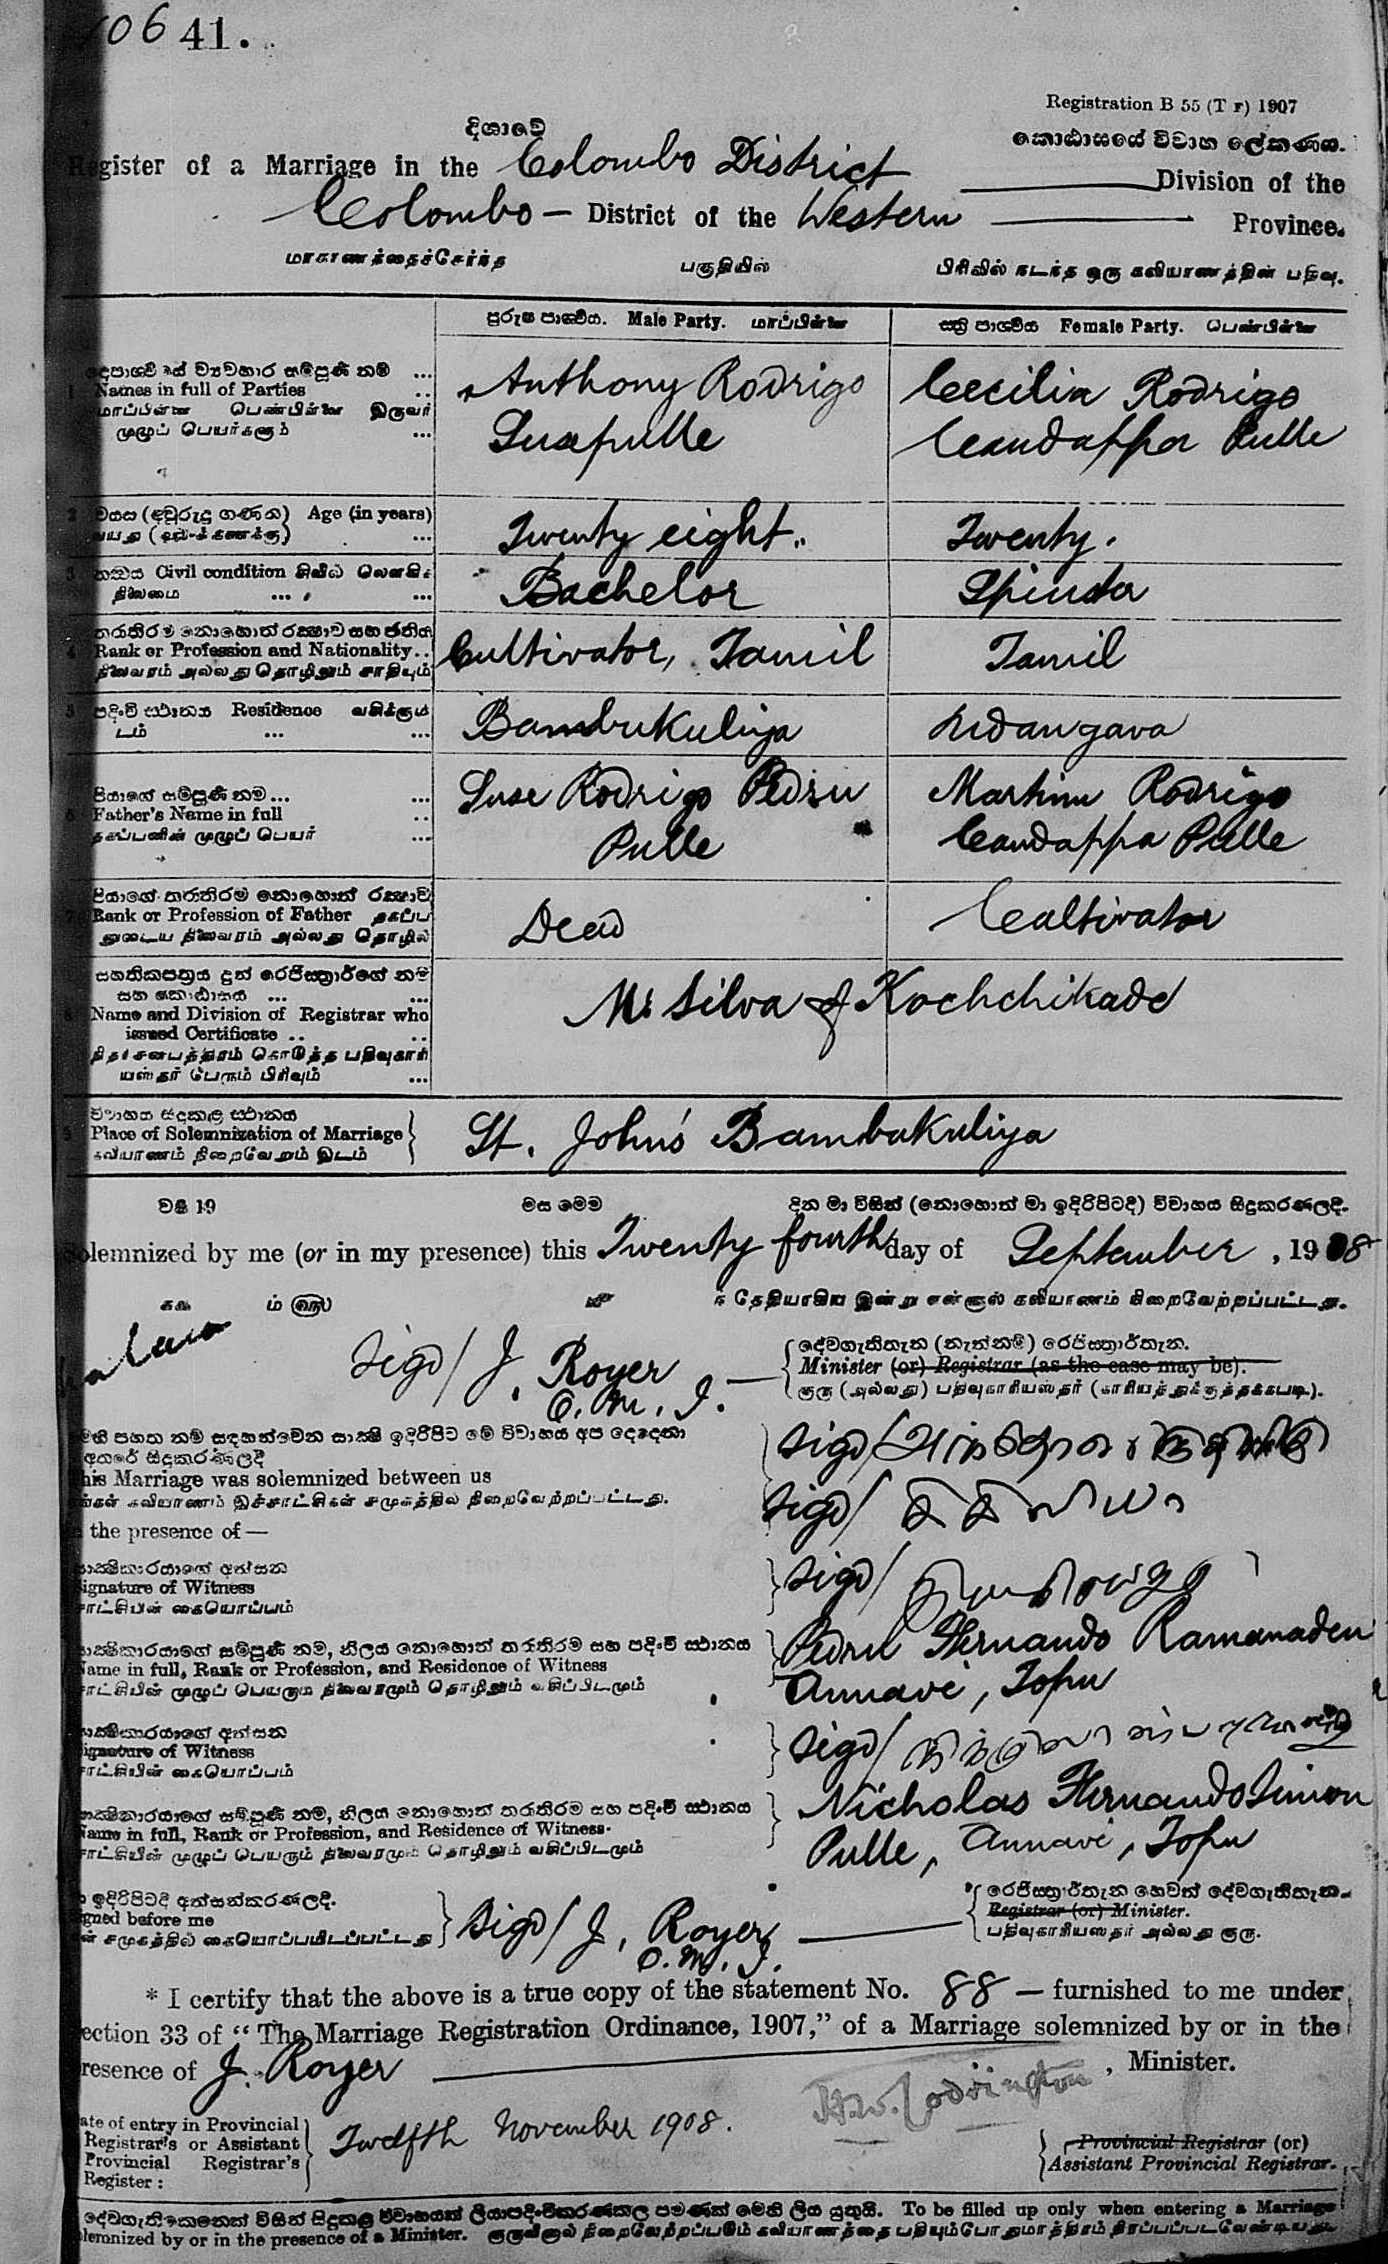 106 41.
Registration B 55 (T r) 1907
දිශාවේ
කොඨාසයේ විවාහ ලේකණය.
Register of a Marriage in the Colombo District Division of the
Colombo — District of the Western Province.
மாகாணத்தைச்சேர்ந்த பகுதியில் பிரிவில் நடந்த ஒரு கலியாணத்தின் பதிவு.
පුරුෂ පාර්ශ්වය. Male Party. மாப்பிள்ளை
ස්ත්‍රී පාර්ශ්වය Female Party. பெண்பிள்ளை
1 Names in full of Parties
மாப்பிள்ளை பெண்பிள்ளை இருவர்
முழுப் பெயர்களும்
Anthony Rodrigo
Susepulle
Cecilia Rodrigo
Candappa Pulle
2 වයස (අවුරුදු ගණන) Age (in years)
Twenty eight.
Twenty.
3 Civil condition
நிலைமை
Bachelor
Spinster
4 Rank or Profession and Nationality
நிலைவரம் அல்லது தொழிலும் சாதியும்
Cultivator, Tamil
Tamil
5 පදිංචි ස්ථානය Residence
Bambukuliya
Udangava
පියාගේ සම්පූර්ණ නම
6 Father's Name in full
தகப்பனின் முழுப் பெயர்
Suse Rodrigo Pedru
Pulle
Martinu Rodrigo
Candappa Pulle
පියාගේ තරාතිරම නොහොත් රක්ෂාව
7 Rank or Profession of Father தகப்ப
னுடைய நிலைவரம் அல்லது தொழில்
Dead
Cultivator
සහතිකපත්‍රය දුන් රෙජිස්ත්‍රාර්ගේ නම
සහ කොඨාසය
8 Name and Division of Registrar who
issued Certificate
யஸ்தர் பேரும் பிரிவும்
Mr Silva of Kochchikade
විවාහය සිදුකළ ස්ථානය
9 Place of Solemnization of Marriage
கலியாணம் நிறைவேறும் இடம்
St. John's Bambukuliya
වර්ෂ 19 මස මෙම දින මා විසින් (නොහොත් මා ඉදිරිපිටදී) විවාහය සිදුකරණලදී.
Solemnized by me (or in my presence) this Twenty fourth day of September, 1908
ந் தேதியாகிய இன்று என்னால் கலியாணம் நிறைவேற்றப்பட்டது.
Sigd/ J. Royer
O. M. I.
දේවගැතිතැන (නැත්නම්) රෙජිස්ත්‍රාර්තැන.
Minister (or) Registrar (as the case may be).
குரு (அல்லது) பதிவுகாரியஸ்தர் (காரியத்துக்குத்தக்கபடி).
This Marriage was solemnized between us
எங்கள் கலியாணம் இச்சாட்சிகள் சமுகத்தில் நிறைவேற்றப்பட்டது.
in the presence of—
Sigd/
Sigd/ சிசிலியா
සාක්ෂිකාරයාගේ අත්සන
Signature of Witness
சாட்சியின் கையொப்பம்
Sigd/
සාක්ෂිකාරයාගේ සම්පූර්ණ නම, නිලය නොහොත් තරාතිරම සහ පදිංචි ස්ථානය
Name in full, Rank or Profession, and Residence of Witness
சாட்சியின் முழுப் பெயரும் நிலைவரமும் தொழிலும் வசிப்பிடமும்
Pedru Fernando Ramanaden
Annavi, Topu
සාක්ෂිකාරයාගේ අත්සන
Signature of Witness
சாட்சியின் கையொப்பம்
Sigd/
සාක්ෂිකාරයාගේ සම්පූර්ණ නම, නිලය නොහොත් තරාතිරම සහ පදිංචි ස්ථානය
Name in full, Rank or Profession, and Residence of Witness.
சாட்சியின் முழுப் பெயரும் நிலைவரமும் தொழிலும் வசிப்பிடமும்
Nicholas Fernando Simon
Pulle, Annavi, Topu
මා ඉදිරිපිටදී අත්සන්කරණලදී.
Signed before me
என் சமுகத்தில் கையொப்பமிடப்பட்டது
Sigd/ J. Royer
O. M. I.
රෙජිස්ත්‍රාර්තැන හෙවත් දේවගැතිතැන.
Registrar (or) Minister.
பதிவுகாரியஸ்தர் அல்லது குரு.
* I certify that the above is a true copy of the statement No. 88 — furnished to me under
section 33 of "The Marriage Registration Ordinance, 1907," of a Marriage solemnized by or in the
presence of J. Royer, Minister.
H. W. Codrington
Date of entry in Provincial
Registrar's or Assistant
Provincial Registrar's
Register:
Twelfth November 1908.
Provincial Registrar (or)
Assistant Provincial Registrar.
To be filled up only when entering a Marriage
solemnized by or in the presence of a Minister. குருவினால் நிறைவேற்றப்படும் கலியாணத்தை பதியும்போதுமாத்திரம் நிரப்பப்படவேண்டியது.